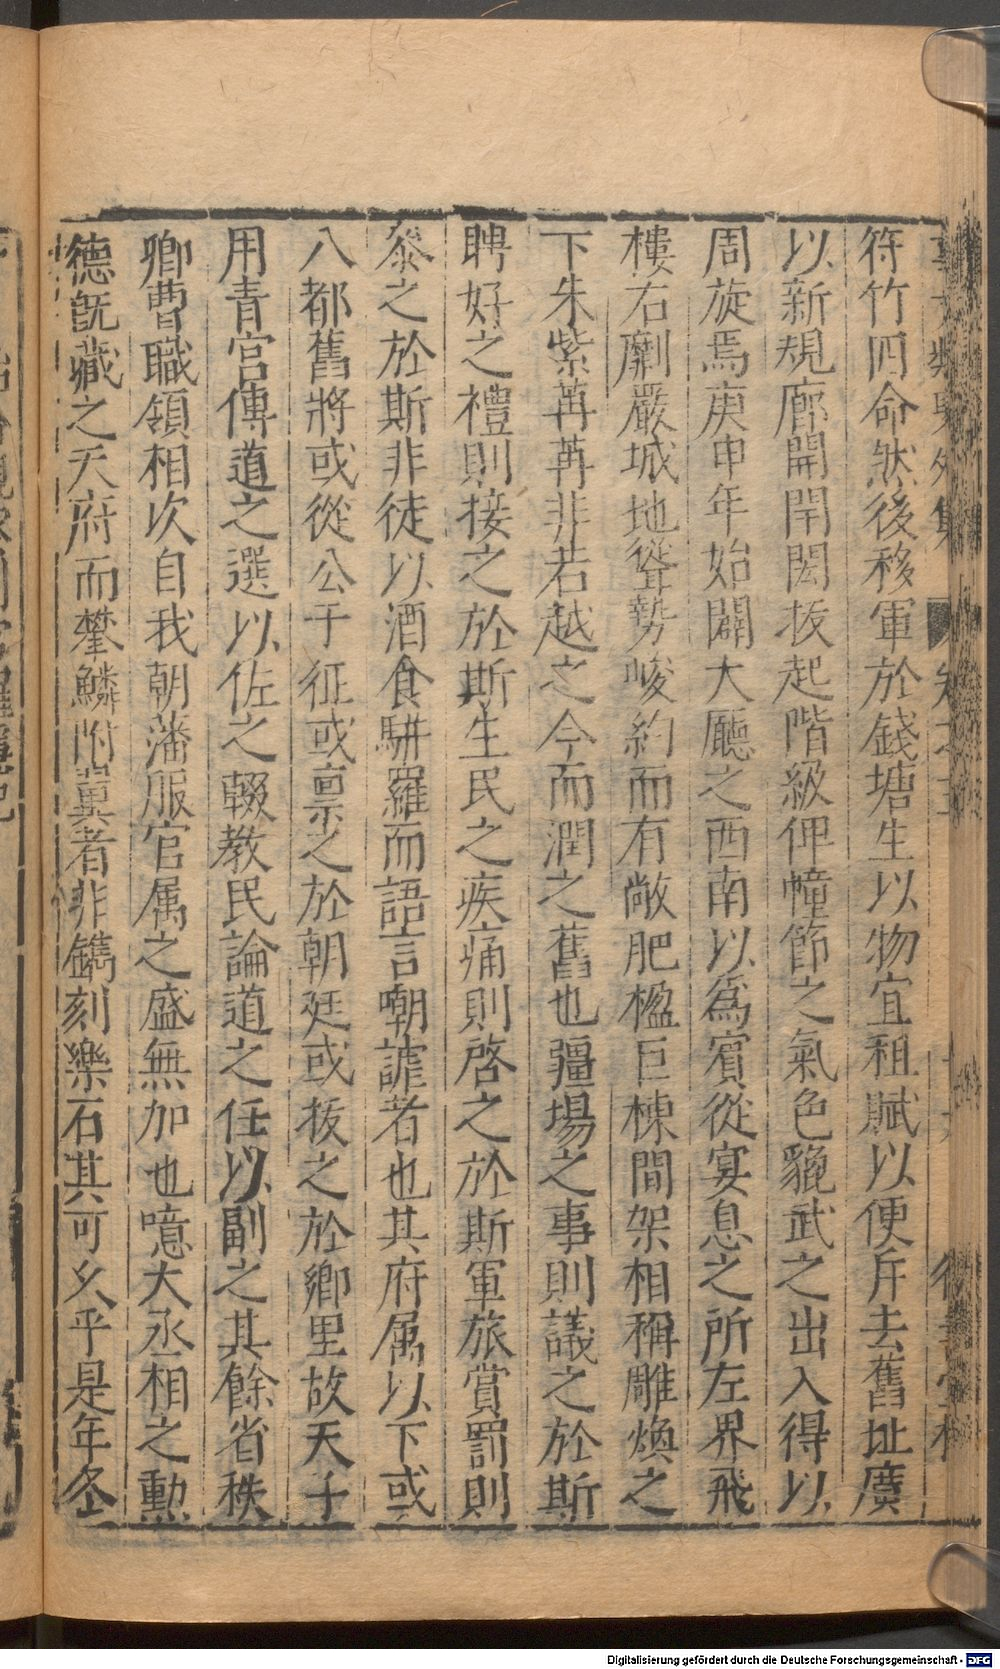 符竹四命然後移軍於錢塘生以物宜租賦以便斥去舊址廣
以新規廊開閈閎拔起階級俾幢節之氣色貔武之出入得以
周旋焉庚申年始闢大廳之西南以爲賓從宴息之所左界飛
樓右劘嚴城地聳勢峻約而有敞肥楹巨棟間架相稱雕煥之
下朱紫苒苒非若越之今而潤之舊也疆場之事則議之於斯
聘好之禮則接之於斯生民之疾痛則啓之於斯軍旅賞罰則
叅之於斯非徒以酒食駢羅而語言嘲謔者也其府属以下或
八都舊將或從公于征或禀之於朝廷或拔之於鄉里故天子
用青宮傳道之選以佐之輟教民論道之任以副之其餘省秩
卿曹職領相次自我朝藩服官属之盛無加也噫大丞相之勳
德旣藏之天府而攀鱗附冀者非鐫刻樂石其可乆乎是年冬
Digitalisierung gefördert durch die Deutsche Forschungsgemeinschaft - DFG